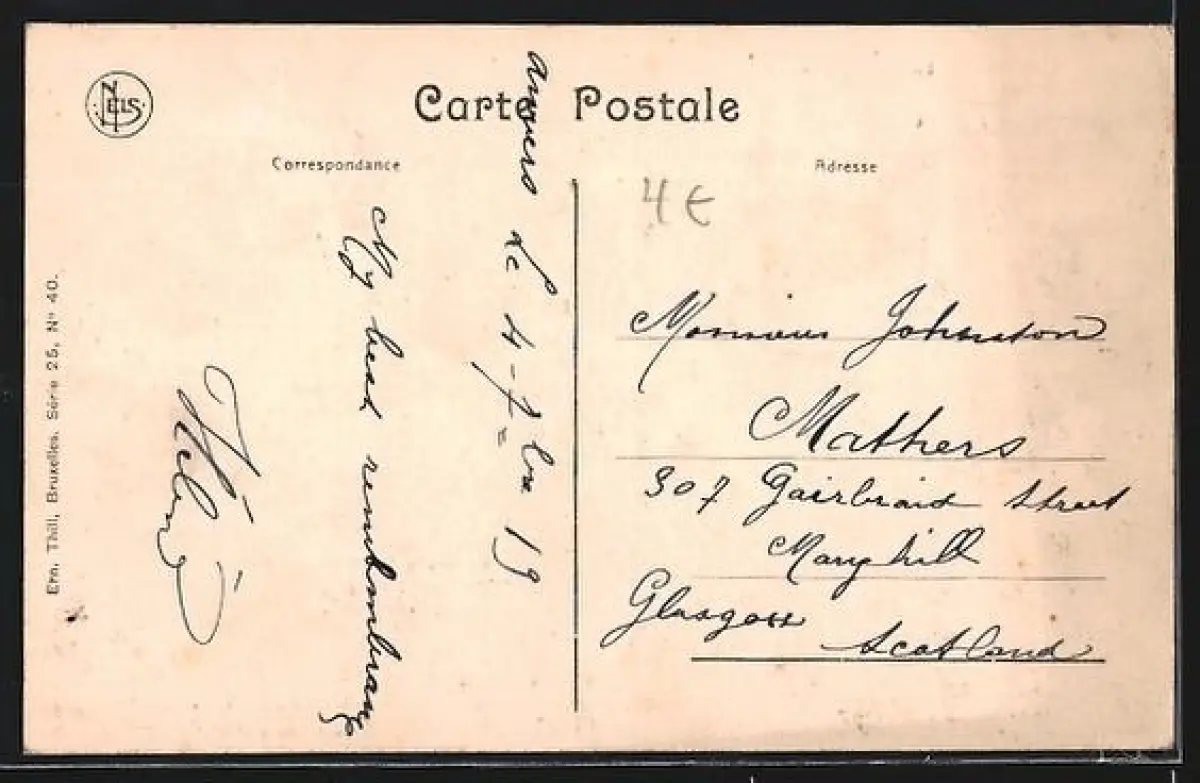 NELS
Carte Postale
Correspondance
Adresse
4 €
Anvers le 4-7-bre 19
My best remembrance
Monsieur Johnston
Mathers
307 Gairbraid Street
Maryhill
Glasgow
Scotland
Ern. Thill, Bruxelles. Série 25, No 40.